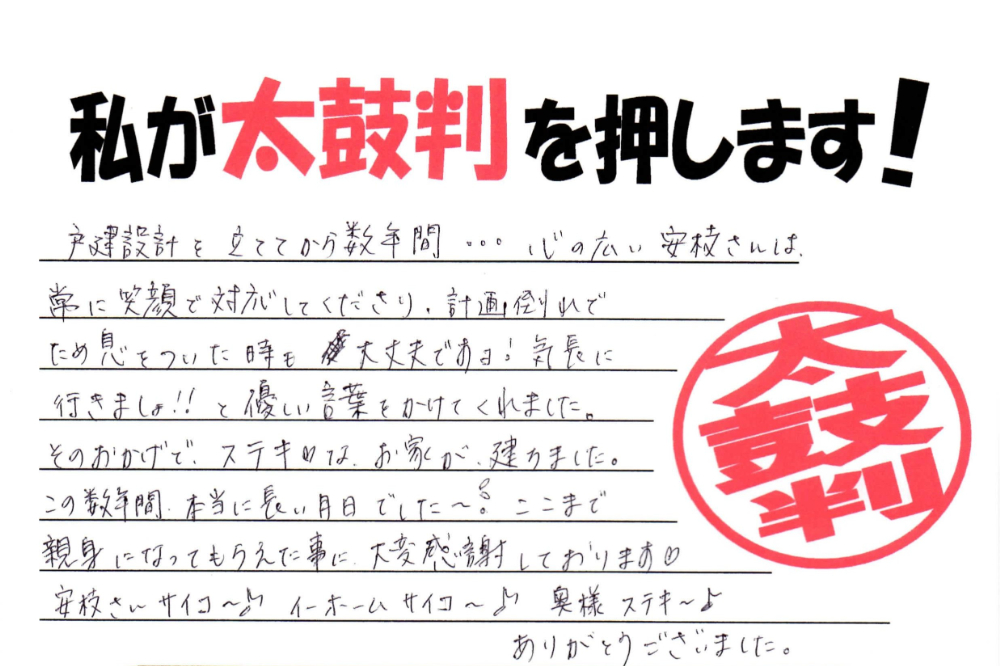 私が太鼓判を押します!
戸建設計を立ててから数年間 ・・・ 心の広い 安枝さんは、
常に笑顔で対応してくださり、計画倒れで
ため息をついた時も 大丈夫である! 気長に
行きましょ!! と優しい言葉をかけてくれました。
そのおかげで、ステキ♡な、お家が、建ちました。
この数年間、本当に長い月日でした〜! ここまで
親身になってもらえた事に、大変感謝しております♡
安枝さん サイコ〜♪ イーホーム サイコ〜♪ 奥様 ステキ〜♪
ありがとうございました。
太鼓判